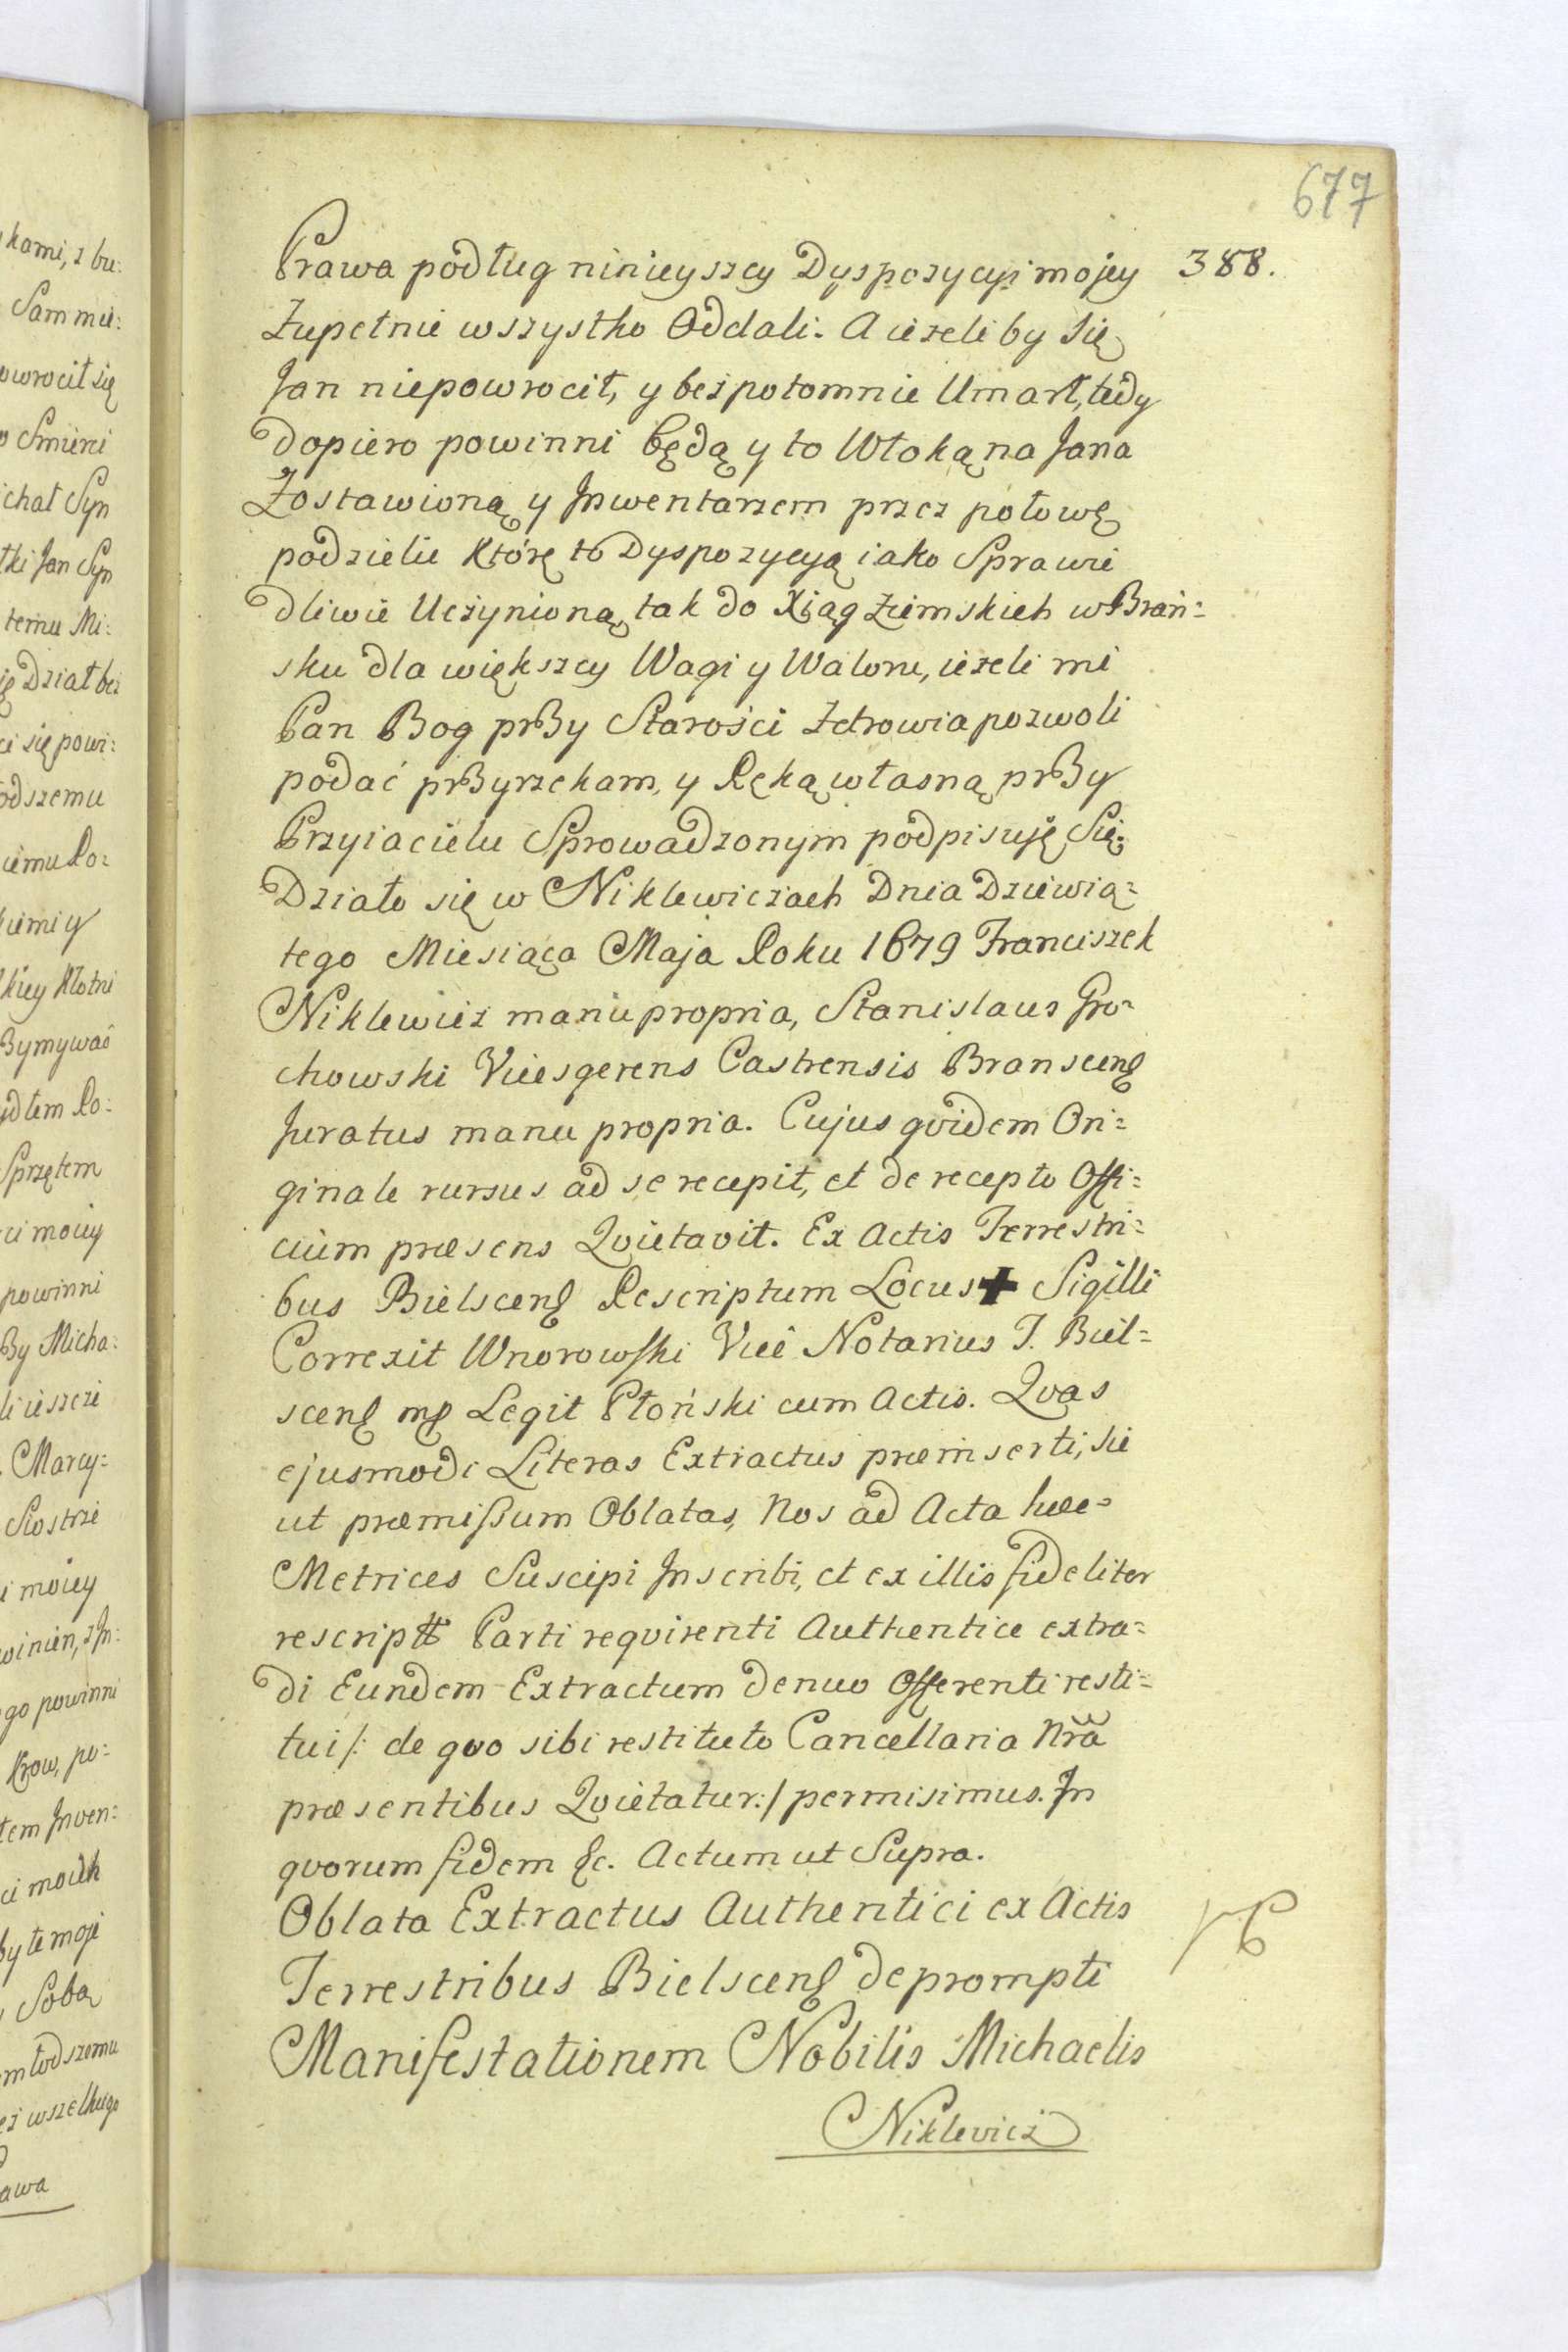 677
388.
Prawa podług ninieyszey Dyspozycyi mojey
Zupełnie wszystko Oddali. A ieżeli by się
Jan niepowrocił, y bezpotomnie Umarł, tedy
dopiero powinni będą y to Włoką na Jana
Zostawioną y Jnwentarzem przez połowę
podzielić Którę to Dyspozycyą iako Sprawie
dliwie Uczynioną, tak do Xiąg Ziemskich w Brań=
sku dla większey Wagi y Waloru, ieżeli mi
Pan Bog przy Starości Zdrowia pozwoli
podać przyrzekam, y Ręką własną przy
Przyiacielu Sprowadzonym podpisuję Się.
Działo się w Niklewiczach Dnia Dziewią=
tego Miesiąca Maja Roku 1679 Franciszek
Niklewicz manu propria, Stanislaus Gro=
chowski Vicesgerens Castrensis Branscens
Juratus manu propria. Cujus qvidem Ori=
ginale rursus ad se recepit, et de recepto Offi=
cium præsens Qvietavit. Ex Actis Terrestri=
bus Bielscens Rescriptum Locus + Sigilli
Correxit Wnorowski Vice Notarius T. Biel=
scens mp Legit Płoński cum Actis. Qvas
ejusmodi Literas Extractus præinserti, sic
ut præmissum Oblatas, Nos ad Acta hæc=
Metrices Suscipi Jnscribi, et ex illis fideliter
rescriptt Parti reqvirenti Authentice extra=
di Eundem Extractum denuo Offerenti resti=
tui /: de qvo sibi restituto Cancellaria Nrã
præsentibus Qvietatur :/ permisimus. Jn
qvorum fidem &c. Actum ut Supra.
Oblata Extractus Authentici ex Actis
Terrestribus Bielscens deprompti
Manifestationem Nobilis Michaelis
Niklevicz
kami, z bu:
Sam mie:
owrocił się
Smierci
ichał Syn
tki Jan Syn
temu Mi:
ię Dział bez
ci się powi:
odszemu
kiey Kłotni
Bymywać
ydłem Ro:
Sprzętem
ci moiey
powinni
By Micha:
li ieszcze
Marcy:
Siostrze
i moiey
winien, z Jn:
go powinni
Krow, po=
tem Jnven:
ci moich
by te moje
Sobą
młodszemu
ez wszelkiego
awa